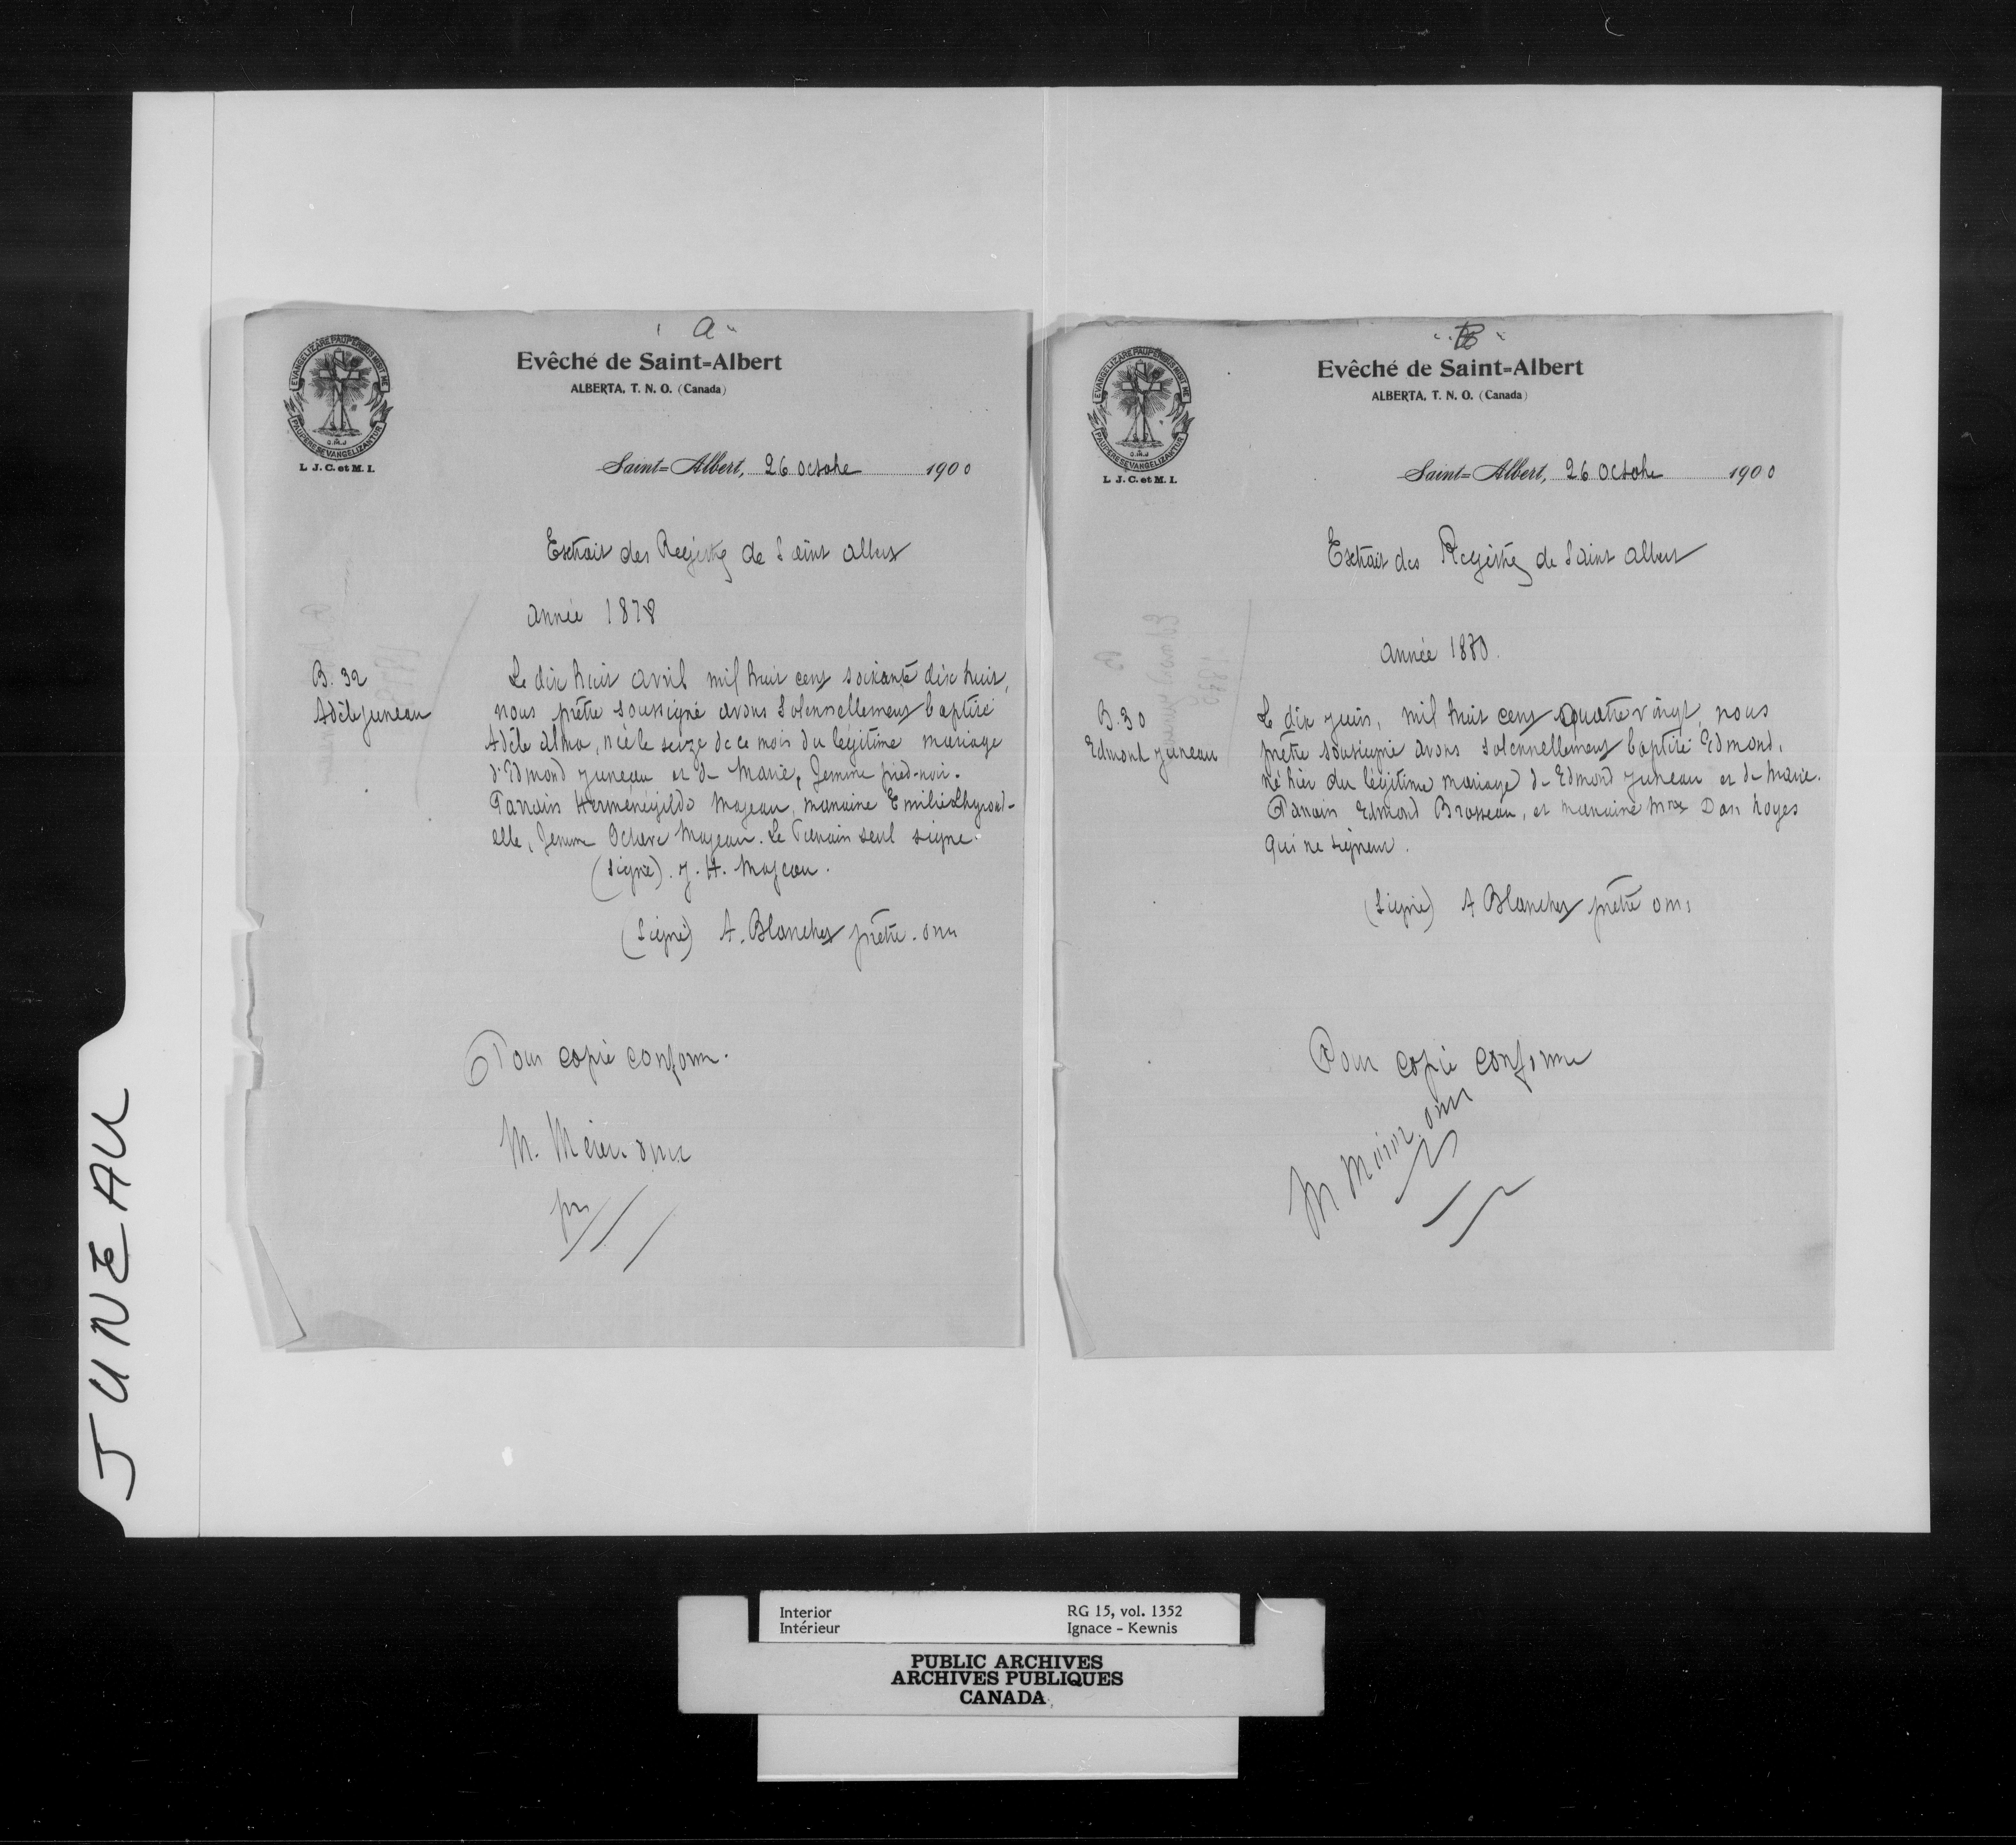 "A"
EVANGELIZARE PAUPERIBUS MISIT ME
PAUPERES EVANGELIZANTUR
O.M.I
L. J. C. et M. I.
Evêché de Saint=Albert
ALBERTA, T. N. O. (Canada)
Saint=Albert, 26 Octobre 1900
Extrait des Registres de Saint Albert
Année 1878
B. 32
Adèle Juneau
Le dix huit avril mil huit cent soixante dix huit,
nous prêtre soussigné avons solennellement baptisé
Adèle Alma, née le seize de ce mois du légitime mariage
d'Edmond Juneau et de Marie, femme pied-noir.
Parrain Herménégilde Majeau, marraine Emilie
elle, femme Octave Majeau. Le Parrain seul signe.
(signé). J. H. Majeau.
(signé) A. Blanchet prêtre. omi
Pour copie conforme.
M. Mérer omi
ptr
"B"
EVANGELIZARE PAUPERIBUS MISIT ME
PAUPERES EVANGELIZANTUR
O.M.I
L. J. C. et M. I.
Evêché de Saint=Albert
ALBERTA, T. N. O. (Canada)
Saint=Albert, 26 Octobre 1900
Extrait des Registres de Saint Albert
Année 1880.
B. 30
Edmond Juneau
Le dix juin, mil huit cent quatre vingt, nous
prêtre soussigné avons solennellement baptisé Edmond,
né hier du légitime mariage de Edmond Juneau et de Marie.
Parrain Edmond Brosseau, et marraine Mrs Dan Noyes
qui ne signent.
(signé) A Blanchet prêtre omi
Pour copie conforme
M Mérer omi
JUNEAU
Interior RG 15, vol. 1352
Intérieur Ignace - Kewnis
PUBLIC ARCHIVES
ARCHIVES PUBLIQUES
CANADA